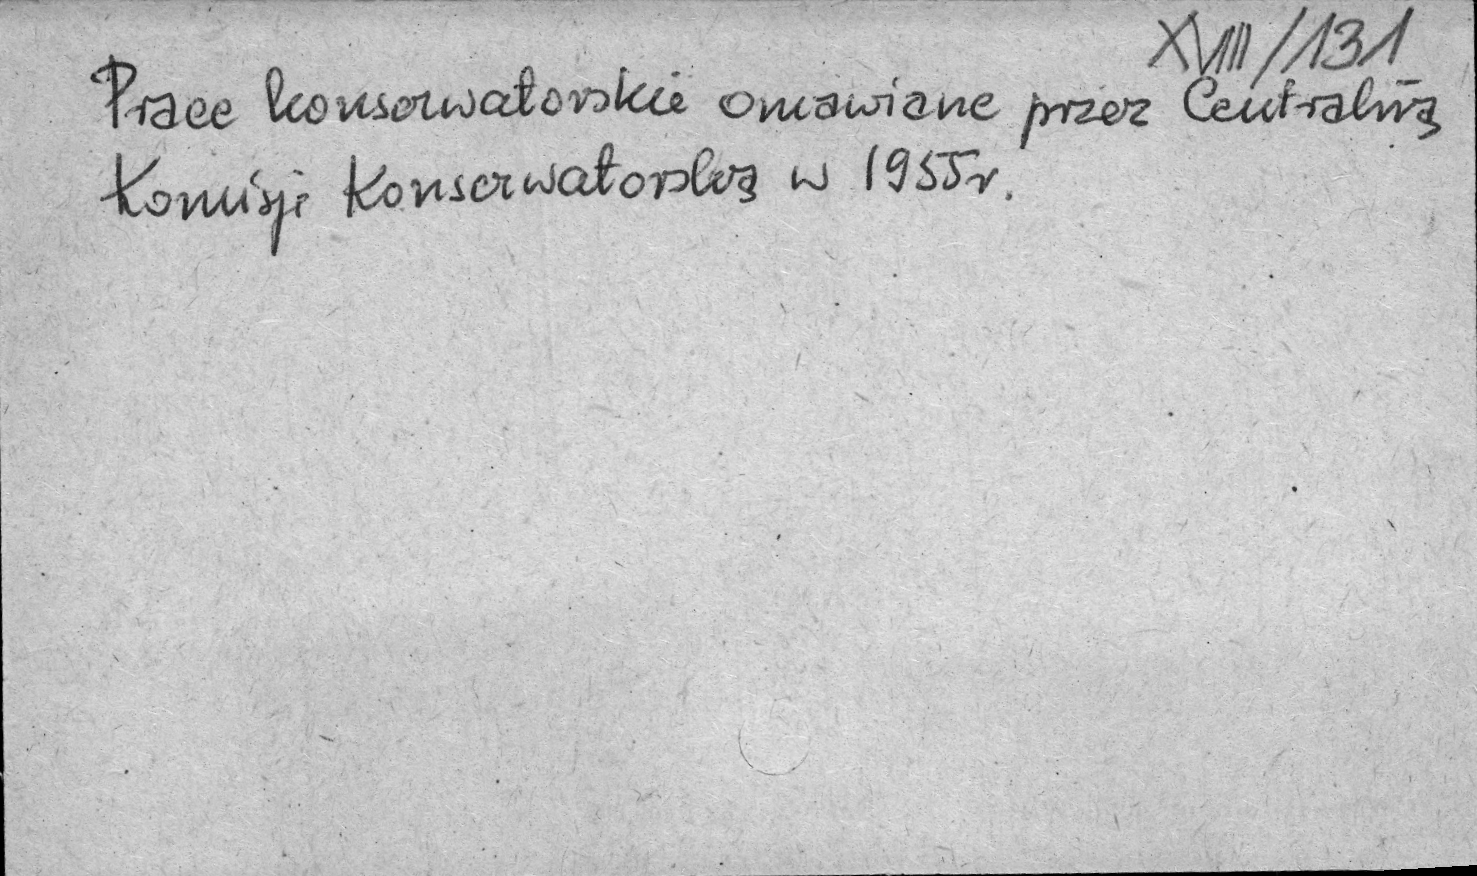 XVIII/131
Prace konserwatorskie omawiane przez Centralną
Komisję Konserwatorską w 1955r.